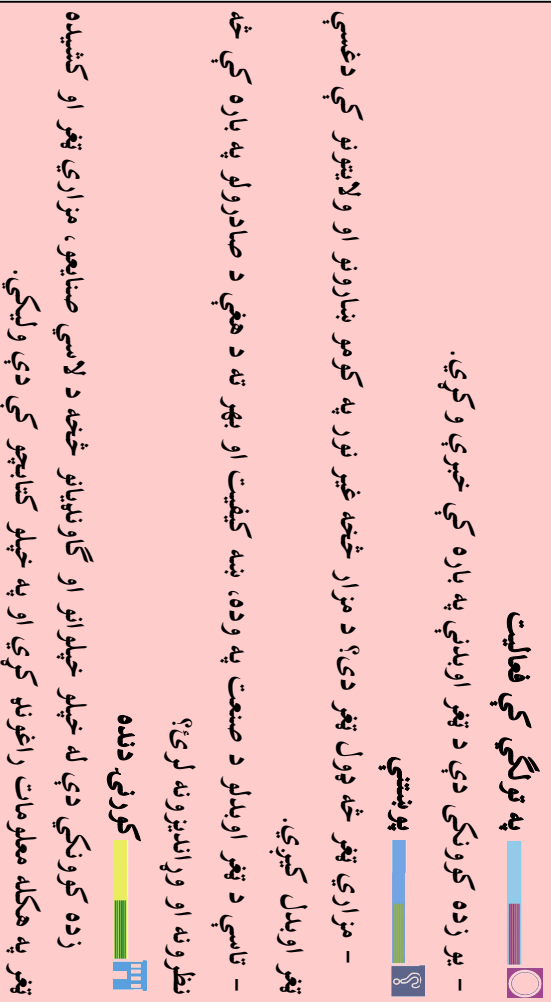 په ټولگي کې فعاليت
- يو زده کوونکي دې د ټغر اوبدنې په باره کې خبرې وکړي.
پوښتنې
- مزاري ټغر څه ډول ټغر دی؟ د مزار څخه غير نور په کومو ښارونو او ولايتونو کې دغسې
ټغر اوبدل کيږي.
- تاسې د ټغر اوبدلو د صنعت په وده، ښه کيفيت او بهر ته د هغې د صادرولو په باره کې څه
نظرونه او وړانديزونه لرئ؟
کورنۍ دنده
زده کوونکي دې له خپلو خپلوانو او گاونډيانو څخه د لاسي صنايعو، مزاري ټغر او کشيده
ټغر په هکله معلومات راغونډ کړي او په خپلو کتابچو کې دې وليکي.